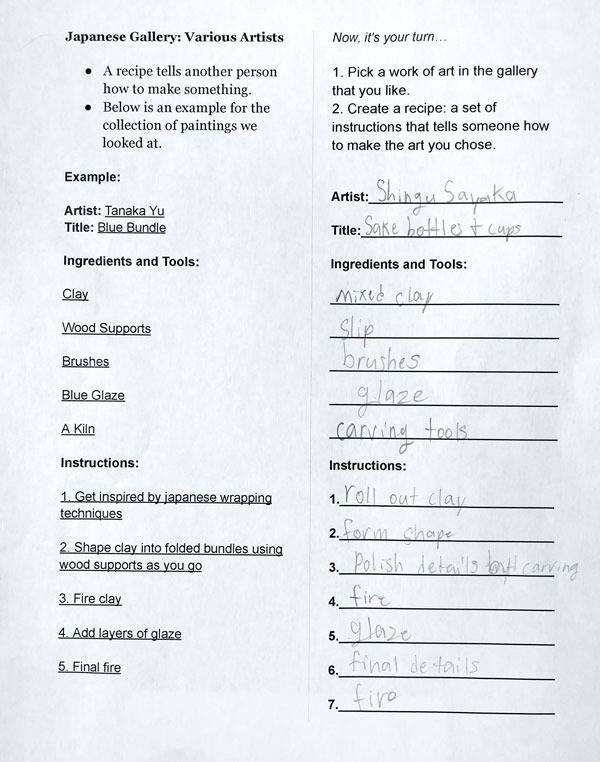 Japanese Gallery: Various Artists
● A recipe tells another person
how to make something.
● Below is an example for the
collection of paintings we
looked at.
Example:
Artist: Tanaka Yu
Title: Blue Bundle
Ingredients and Tools:
Clay
Wood Supports
Brushes
Blue Glaze
A Kiln
Instructions:
1. Get inspired by japanese wrapping
techniques
2. Shape clay into folded bundles using
wood supports as you go
3. Fire clay
4. Add layers of glaze
5. Final fire
Now, it's your turn…
1. Pick a work of art in the gallery
that you like.
2. Create a recipe: a set of
instructions that tells someone how
to make the art you chose.
Artist: Shingu Sayaka
Title: Sake bottles + cups
Ingredients and Tools:
mixed clay
slip
brushes
glaze
carving tools
Instructions:
1. roll out clay
2. form shape
3. Polish details carving
4. fire
5. glaze
6. final details
7. fire